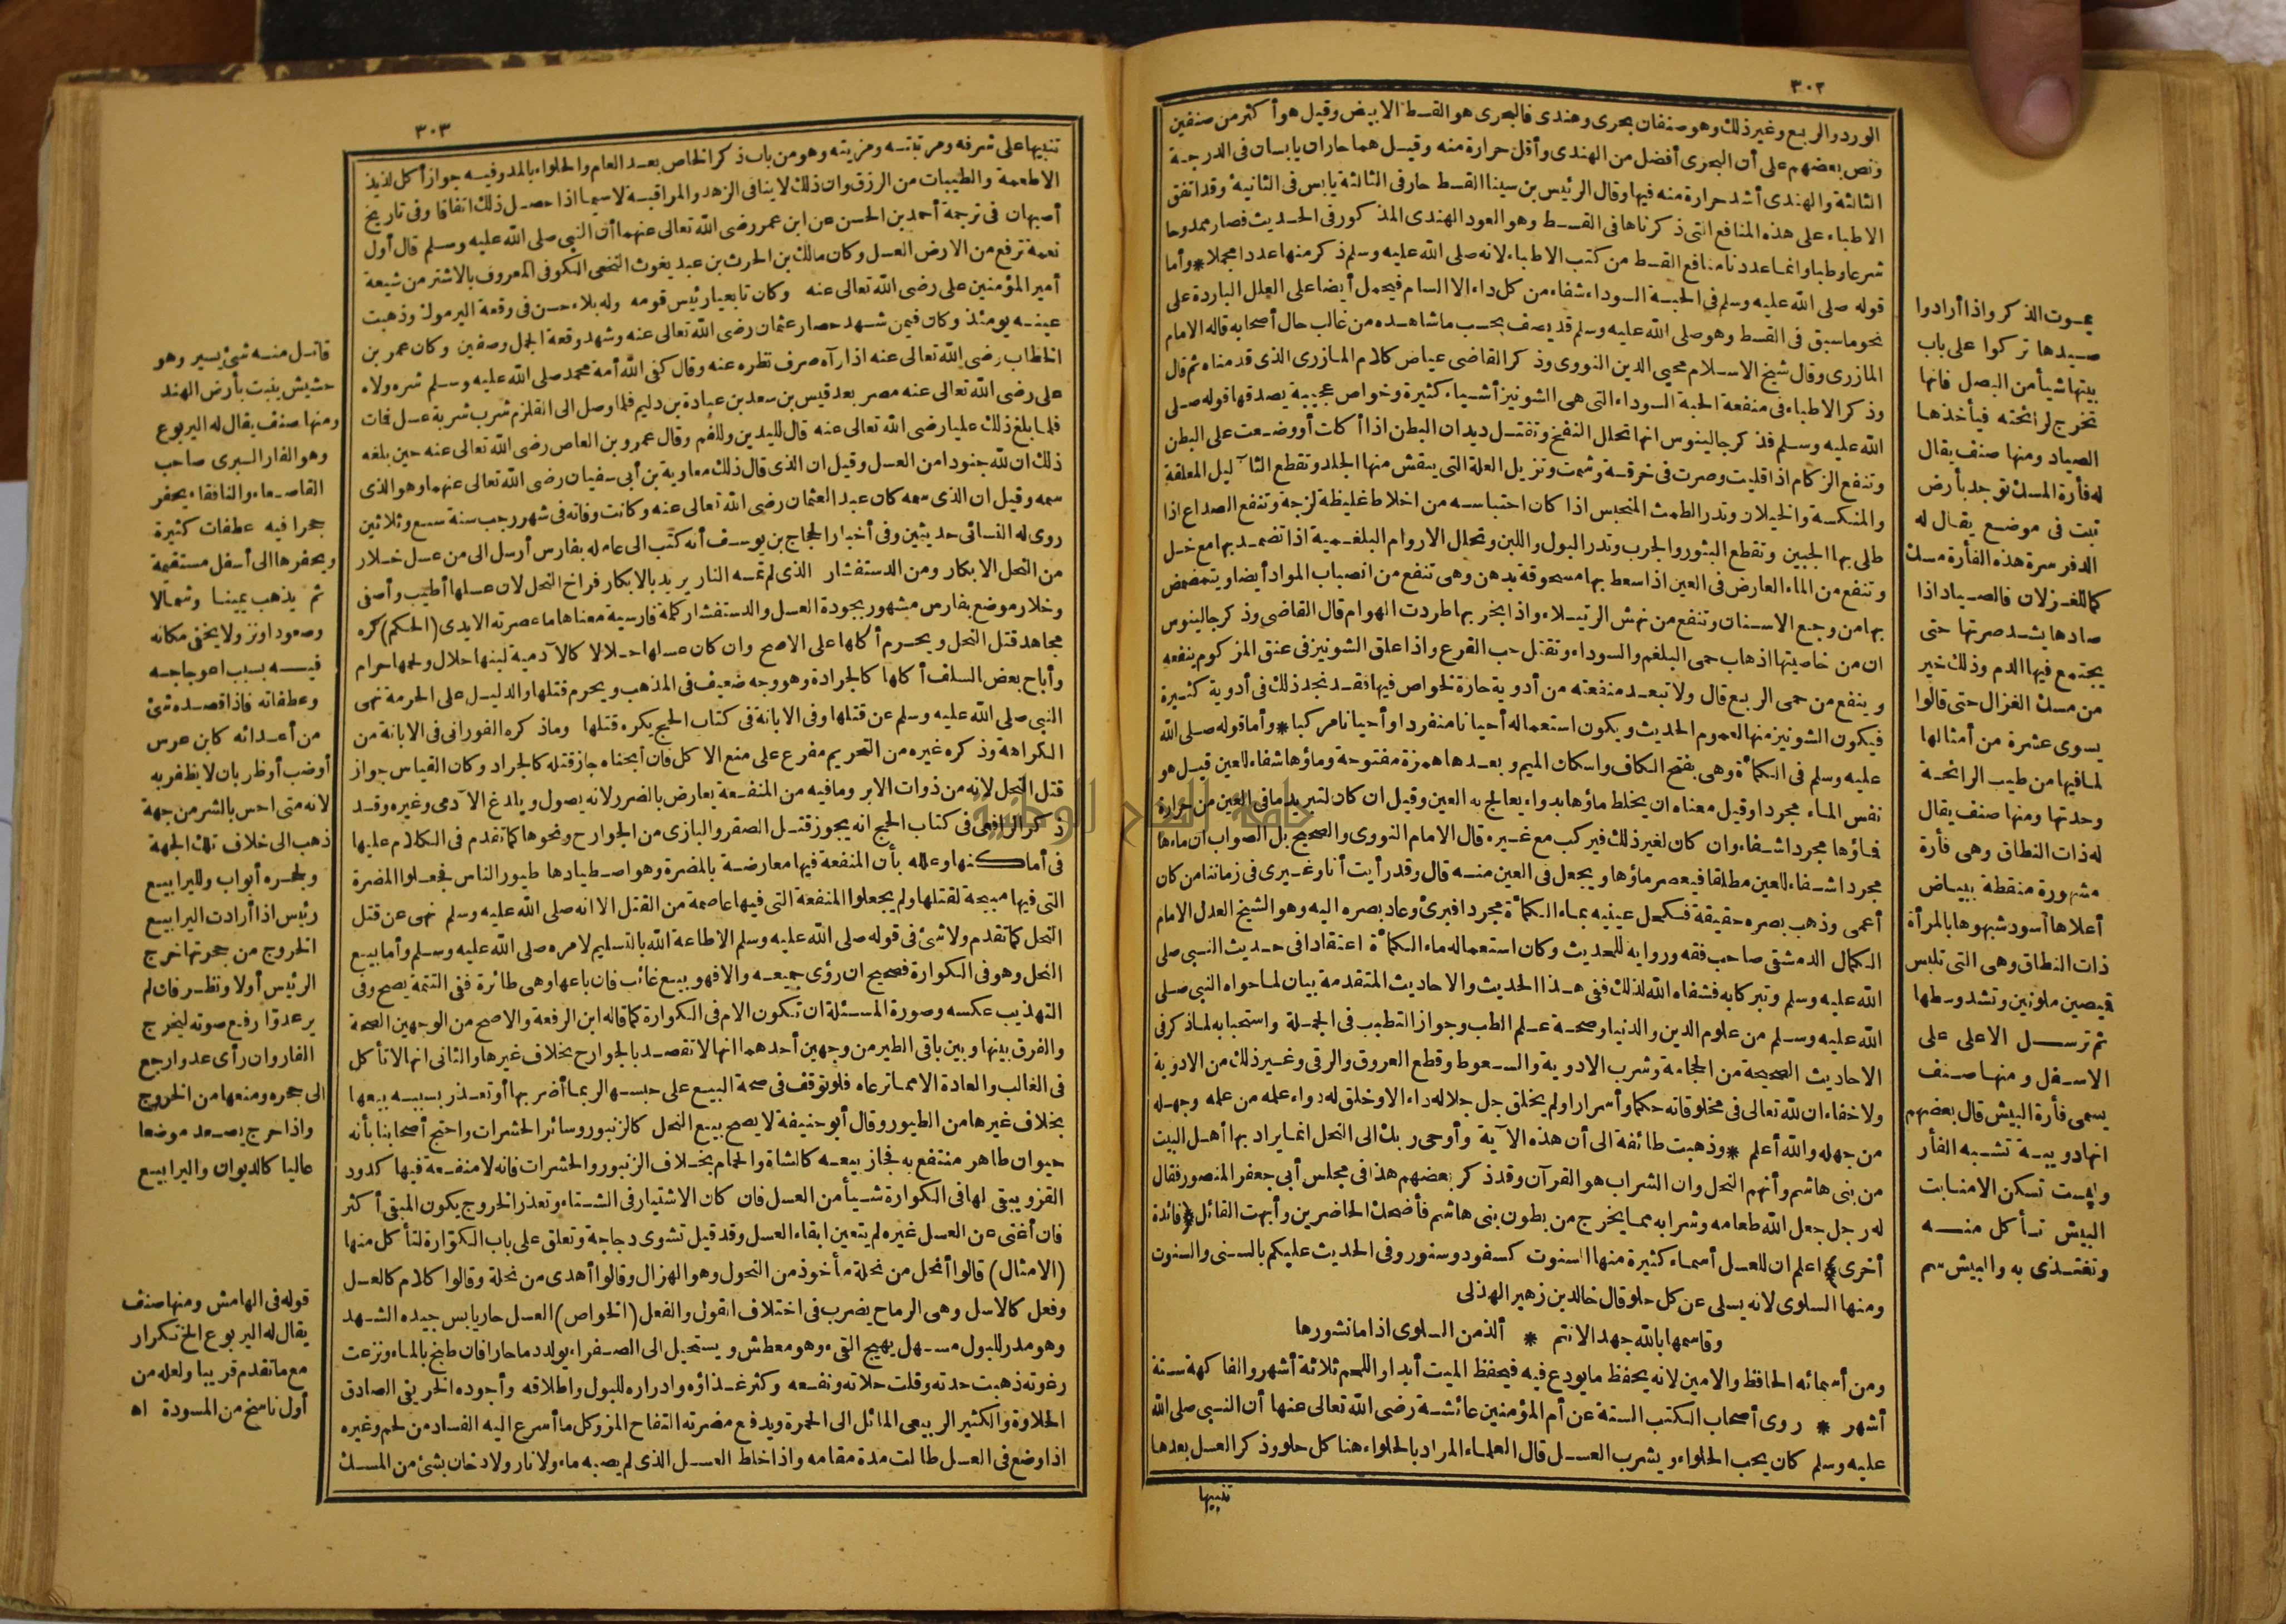 ٣٠٢
الورد والربع وغير ذلك وهو صنفان بحرى وهندى فالبحرى هو القسط الابيض وقيل هو أكثر من صنفين
ونص بعضهم على أن البحرى أفضل من الهندى وأقل حرارة منه وقيل هما حاران يابسان فى الدرجة
الثالثة والهندى أشد حرارة منه فيها وقال الرئيس بن سينا القسط حار فى الثالثة يابس فى الثانية وقد اتفق
الاطباء على هذه المنافع التى ذكرناها فى القسط وهو العود الهندى المذكور فى الحديث فصار ممدوحا
شرعا وطبا وانما عددنا منافع القسط من كتب الاطباء لانه صلى الله عليه وسلم ذكر منها عددا مجملا * وأما
قوله صلى الله عليه وسلم فى الحبة السوداء شفاء من كل داء الا السام فيحمل أيضا على العلل الباردة على
نحو ما سبق فى القسط وهو صلى الله عليه وسلم قد يصف بحسب ما شاهده من غالب حال أصحابه قاله الامام
المازرى وقال شيخ الاسلام محيى الدين النووى وذكر القاضى عياض كلام المازرى الذى قدمناه ثم قال
وذكر الاطباء فى منفعة الحبة السوداء التى هى الشونيز أشياء كثيرة وخواص عجيبة يصدقها قوله صلى
الله عليه وسلم فذكر جالينوس انها تحلل النفخ وتقتل ديدان البطن اذا أكلت أو وضعت على البطن
وتنفع الزكام اذا قليت وصرت فى خرقة وشمت وتزيل العلة التى يتقشر منها الجلد وتقطع الثآليل المعلقة
والمنكسة والخيلان وتدر الطمث المنحبس اذا كان احتباسه من اخلاط غليظة لزجة وتنفع الصداع اذا
طلى بها الجبين وتقطع البثور والجرب وتدر البول واللبن وتحلل الاورام البلغمية اذا تضمد بها مع خل
وتنفع من الماء العارض فى العين اذا سعط بها مسحوقة بدهن وهى تنفع من انصباب المواد أيضا ويتمضمض
بها من وجع الاسنان وتنفع من نهش الرتيلاء واذا بخر بها طردت الهوام قال القاضى وذكر جالينوس
ان من خاصيتها اذهاب حمى البلغم والسوداء وتقتل حب القرع واذا علق الشونيز فى عنق المزكوم ينفعه
وينفع من حمى الربع قال ولا تبعد منفعته من أدوية حارة لخواص فيها فقد نجد ذلك فى أدوية كثيرة
فيكون الشونيز منها لعموم الحديث ويكون استعماله أحيانا منفردا وأحيانا مركبا * وأما قوله صلى الله
عليه وسلم فى الكمأة وهى بفتح الكاف واسكان الميم وبعدها همزة مفتوحة وماؤها شفاء للعين قيل هو
نفس الماء مجردا وقيل معناه ان يخلط ماؤها بدواء يعالج به العين وقيل ان كان لتبريد ما فى العين من حرارة
فماؤها مجردا شفاء وان كان لغير ذلك فيركب مع غيره قال الامام النووى والصحيح بل الصواب ان ماءها
مجردا شفاء للعين مطلقا فيعصر ماؤها ويجعل فى العين منه قال وقد رأيت أنا وغيرى فى زماننا من كان
أعمى وذهب بصره حقيقة فكحل عينيه بماء الكمأة مجردا فبرئ وعاد بصره اليه وهو الشيخ العدل الامام
الكمال الدمشقى صاحب فقه ورواية للحديث وكان استعماله ماء الكمأة اعتقادا فى حديث النبى صلى
الله عليه وسلم وتبركا به فشفاه الله لذلك ففى هذا الحديث والاحاديث المتقدمة بيان لما حواه النبى صلى
الله عليه وسلم من علوم الدين والدنيا وصحة علم الطب وجواز التطبب فى الجملة واستحبابه لما ذكر فى
الاحاديث الصحيحة من الحجامة وشرب الادوية والسعوط وقطع العروق والرقى وغير ذلك من الادوية
ولا خفاء ان لله تعالى فى مخلوقاته حكما وأسرارا ولم يخلق جل جلاله داء الا وخلق له دواء علمه من علمه وجهله
من جهله والله أعلم * وذهبت طائفة الى أن هذه الآية وأوحى ربك الى النحل انما يراد بها أهل البيت
من بنى هاشم وأنهم النحل وان الشراب هو القرآن وقد ذكر بعضهم هذا فى مجلس أبى جعفر المنصور فقال
له رجل جعل الله طعامه وشرابه مما يخرج من بطون بنى هاشم فأضحك الحاضرين وأبهت القائل ﴿ فائدة
أخرى ﴾ اعلم ان للعسل أسماء كثيرة منها السنوت كسفود وسنور وفى الحديث عليكم بالسنى والسنوت
ومنها السلوى لانه يسلى عن كل حلو قال خالد بن زهير الهذلى
وقاسمها بالله جهدا لانتم * ألذ من السلوى اذا ما نشورها
ومن أسمائه الحافظ والامين لانه يحفظ ما يودع فيه فيحفظ الميت أبدا واللحم ثلاثة أشهر والفاكهة ستة
أشهر * روى أصحاب الكتب الستة عن أم المؤمنين عائشة رضى الله تعالى عنها أن النبى صلى الله
عليه وسلم كان يحب الحلواء ويشرب العسل قال العلماء المراد بالحلواء هنا كل حلو وذكر العسل بعدها
تنبيها
يموت الذكر واذا أرادوا
صيدها تركوا على باب
بيتها شيأ من البصل فانها
تخرج لرائحته فيأخذها
الصياد ومنها صنف يقال
له فأرة المسك توجد بأرض
تبت فى موضع يقال له
الدفر سرة هذه الفأرة مسك
كما للغزلان فالصياد اذا
صادها شد صرتها حتى
يجتمع فيها الدم وذلك خير
من مسك الغزال حتى قالوا
يسوى عشرة من أمثالها
لما فيها من طيب الرائحة
وحدتها ومنها صنف يقال
له ذات النطاق وهى فأرة
مشهورة منقطة ببياض
أعلاها أسود شبهوها بالمرأة
ذات النطاق وهى التى تلبس
قيصين ملونين وتشد وسطها
ثم ترسل الاعلى على
الاسفل ومنها صنف
يسمى فأرة البيش قال بعضهم
انها دويبة تشبه الفأر
وليست تسكن الا منابت
البيش تأكل منه
وتغتذى به والبيش سم
٣٠٣
تنبيها على شرفه ومرتبته ومزيته وهو من باب ذكر الخاص بعد العام والحلواء بالمد وفيه جواز أكل لذيذ
الاطعمة والطيبات من الرزق وان ذلك لا ينافى الزهد والمراقبة لا سيما اذا حصل ذلك اتفاقا وفى تاريخ
أصبهان فى ترجمة أحمد بن الحسن عن ابن عمر رضى الله تعالى عنهما أن النبى صلى الله عليه وسلم قال أول
نعمة ترفع من الارض العسل وكان مالك بن الحرث بن عبد يغوث النخعى الكوفى المعروف بالاشتر من شيعة
أمير المؤمنين على رضى الله تعالى عنه وكان تابعيا رئيس قومه وله بلاء حسن فى وقعة اليرموك وذهبت
عينه يومئذ وكان فيمن شهد حصار عثمان رضى الله تعالى عنه وشهد وقعة الجمل وصفين وكان عمر بن
الخطاب رضى الله تعالى عنه اذا رآه صرف نظره عنه وقال كفى الله أمة محمد صلى الله عليه وسلم شره ولاه
على رضى الله تعالى عنه مصر بعد قيس بن سعد بن عبادة بن دليم فلما وصل الى القلزم شرب شربة عسل فمات
فلما بلغ ذلك عليا رضى الله تعالى عنه قال لليدين وللفم وقال عمرو بن العاص رضى الله تعالى عنه حين بلغه
ذلك ان لله جنودا من العسل وقيل ان الذى قال ذلك معاوية بن أبى سفيان رضى الله تعالى عنهما وهو الذى
سمه وقيل ان الذى سمه كان عبد العثمان رضى الله تعالى عنه وكانت وفاته فى شهر رجب سنة سبع وثلاثين
روى له النسائى حديثين وفى أخبار الحجاج بن يوسف أنه كتب الى عامله بفارس أرسل الى من عسل خلار
من النحل الابكار ومن الدستفشار الذى لم تمسه النار يريد بالابكار فراخ النحل لان عسلها أطيب وأصفى
وخلار موضع بفارس مشهور بجودة العسل والدستفشار كلمة فارسية معناها ما عصرته الايدى (الحكم) كره
مجاهد قتل النحل ويحرم أكلها على الاصح وان كان عسلها حلالا كالآدمية لبنها حلال ولحمها حرام
وأباح بعض السلف أكلها كالجرادة وهو وجه ضعيف فى المذهب ويحرم قتلها والدليل على الحرمة نهى
النبى صلى الله عليه وسلم عن قتلها وفى الابانة فى كتاب الحج يكره قتلها وما ذكره الفورانى فى الابانة من
الكراهة وذكره غيره من التحريم مفرع على منع الاكل فان أبحناه جاز قتله كالجراد وكان القياس جواز
قتل النحل لانه من ذوات الابر وما فيه من المنفعة يعارض بالضرر لانه يصول ويلدغ الآدمى وغيره وقد
ذكر الرافعى فى كتاب الحج انه يجوز قتل الصقر والبازى من الجوارح ونحوها كما تقدم فى الكلام عليها
فى أماكنها وعلله بأن المنفعة فيها معارضة بالمضرة وهو اصطيادها طيور الناس فجعلوا المضرة
التى فيها مبيحة لقتلها ولم يجعلوا المنفعة التى فيها عاصمة من القتل الا انه صلى الله عليه وسلم نهى عن قتل
النحل كما تقدم ولا شئ فى قوله صلى الله عليه وسلم الا طاعة الله بالتسليم لامره صلى الله عليه وسلم وأما بيع
النحل وهو فى الكوارة فصحيح ان رؤى جميعه والا فهو بيع غائب فان باعها وهى طائرة ففى التتمة يصح وفى
التهذيب عكسه وصورة المسئلة ان تكون الام فى الكوارة كما قاله ابن الرفعة والاصح من الوجهين الصحة
والفرق بينها وبين باقى الطير من وجهين أحدهما انها لا تقصد بالجوارح بخلاف غيرها والثانى انها لا تأكل
فى الغالب والعادة الا مما ترعاه فلو توقف فى صحة البيع على حبسها لربما أضر بها أو تعذر بسببه بيعها
بخلاف غيرها من الطيور وقال أبو حنيفة لا يصح بيع النحل كالزنبور وسائر الحشرات واحتج أصحابنا بأنه
حيوان طاهر منتفع به فجاز بيعه كالشاة والحمام بخلاف الزنبور والحشرات فانه لا منفعة فيها كدود
القز ويبقى لها فى الكوارة شيأ من العسل فان كان الاشتيار فى الشتاء وتعذر الخروج يكون المبقى أكثر
فان أغنى عن العسل غيره لم يتعين ابقاء العسل وقد قيل تشوى دجاجة وتعلق على باب الكوارة لتأكل منها
(الامثال) قالوا أنحل من نحلة مأخوذ من النحول وهو الهزال وقالوا أهدى من نحلة وقالوا كلام كالعسل
وفعل كالاسل وهى الرماح يضرب فى اختلاف القول والفعل (الخواص) العسل حار يابس جيده الشهد
وهو مدر للبول مسهل يهيج القىء وهو معطش ويستحيل الى الصفراء يولد دما حارا فان طبخ بالماء ونزعت
رغوته ذهبت حدته وقلت حلاته ونفعه وكثر غذاؤه وادراره للبول واطلاقه وأجوده الخريفى الصادق
الحلاوة والكثير الربيعى المائل الى الحمرة ويدفع مضرته التفاح المز وكل ما أسرع اليه الفساد من لحم وغيره
اذا وضع فى العسل طالت مدة مقامه واذا خلط العسل الذى لم يصبه ماء ولا نار ولا دخان بشئ من المسك
قاتل منه شئ يسير وهو
حشيش ينبت بأرض الهند
ومنها صنف يقال له اليربوع
وهو الفار البرى صاحب
القاصعاء والنافقاء يحفر
جحرا فيه عطفات كثيرة
ويحفرها الى أسفل مستقيمة
ثم يذهب يمينا وشمالا
وصعودا ونزولا يخفى مكانه
فيه بسبب اعوجاجه
وعطفاته فاذا قصده شئ
من أعدائه كابن عرس
أوضب أو ظربان لا يظفر به
لانه متى احس بالشر من جهة
ذهب الى خلاف تلك الجهة
ولجحره أبواب ولليرابيع
رئيس اذا أرادت اليرابيع
الخروج من جحرتها خرج
الرئيس أولا ونظر فان لم
ير عدوّا رفع صوته ليخرج
الفار وان رأى عدوا رجع
الى جحره ومنعها من الخروج
واذا خرج يصعد موضعا
عاليا كالديوان واليرابيع
قوله فى الهامش ومنها صنف
يقال له اليربوع الخ تكرار
مع ما تقدم قريبا ولعله من
أول ناسخ من المسودة اه
جامعة النجاح الوطنية